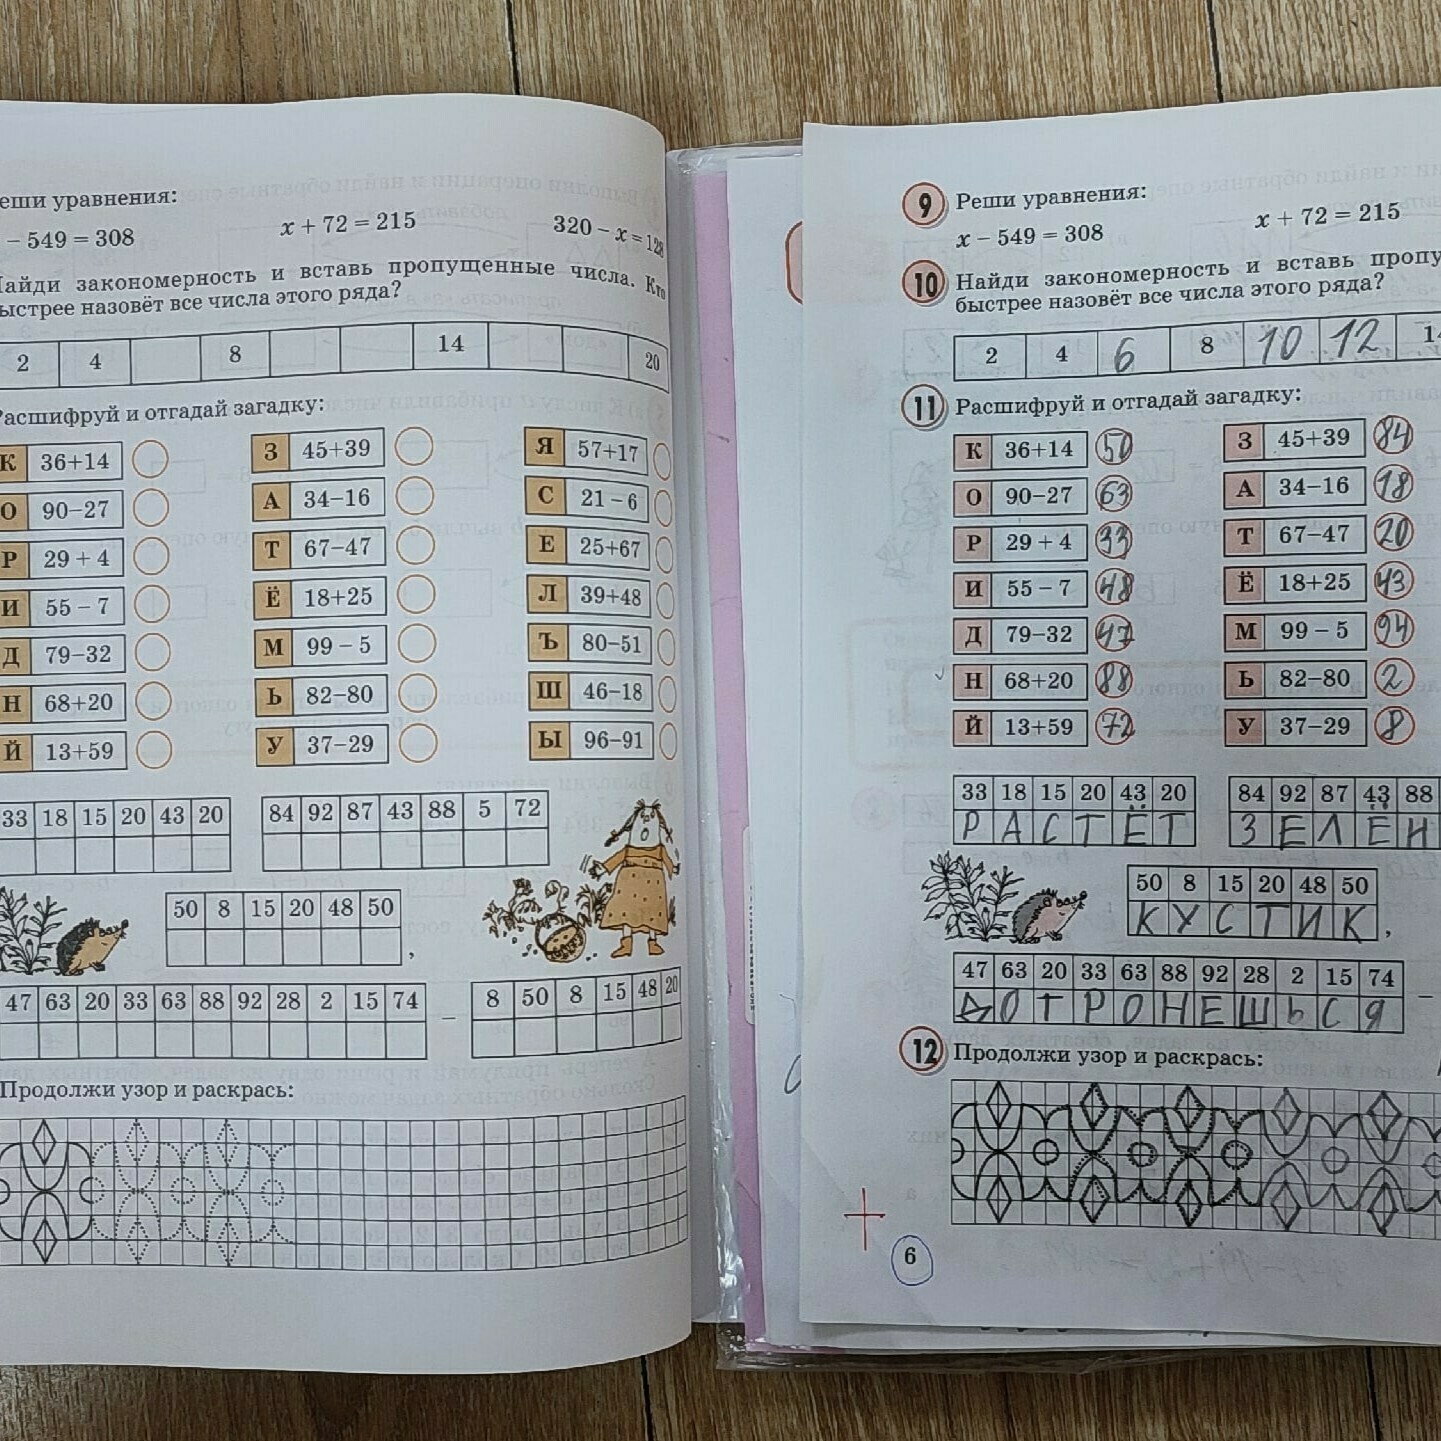 еши уравнения:
– 549 = 308
x + 72 = 215
320 – x = 128
Найди закономерность и вставь пропущенные числа. Кто
быстрее назовёт все числа этого ряда?
2 4 8 14 20
Расшифруй и отгадай загадку:
К 36+14 З 45+39 Я 57+17
О 90–27 А 34–16 С 21 – 6
Р 29 + 4 Т 67–47 Е 25+67
И 55 – 7 Ё 18+25 Л 39+48
Д 79–32 М 99 – 5 Ъ 80–51
Н 68+20 Ь 82–80 Ш 46–18
Й 13+59 У 37–29 Ы 96–91
33 18 15 20 43 20
84 92 87 43 88 5 72
50 8 15 20 48 50
,
47 63 20 33 63 88 92 28 2 15 74 –
8 50 8 15 48 20
Продолжи узор и раскрась:
9 Реши уравнения:
x – 549 = 308
x + 72 = 215
10 Найди закономерность и вставь пропу
быстрее назовёт все числа этого ряда?
2 4 6 8 10 12 14
11 Расшифруй и отгадай загадку:
К 36+14 50 З 45+39 84
О 90–27 63 А 34–16 18
Р 29 + 4 33 Т 67–47 20
И 55 – 7 48 Ё 18+25 43
Д 79–32 47 М 99 – 5 94
Н 68+20 88 Ь 82–80 2
Й 13+59 72 У 37–29 8
33 18 15 20 43 20
РАСТЁТ
84 92 87 43 88
ЗЕЛЁН
50 8 15 20 48 50
КУСТИК,
47 63 20 33 63 88 92 28 2 15 74
ДОТРОНЕШЬСЯ –
12 Продолжи узор и раскрась:
6